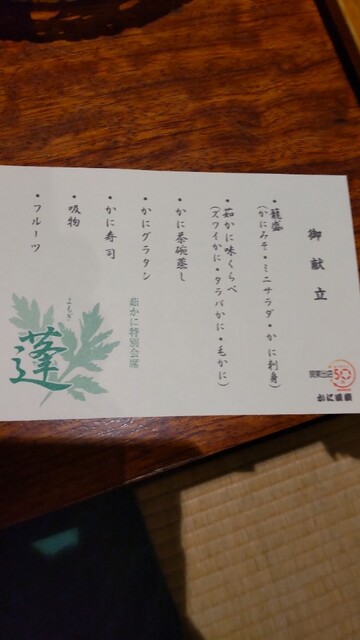 御献立
・籠盛
(かにみそ・ミニサラダ・かに刺身)
・茹かに味くらべ
(ズワイかに・タラバかに・毛かに)
・かに茶碗蒸し
・かにグラタン
・かに寿司
・吸物
・フルーツ
茹かに特別会席
よもぎ
蓬
関東出店
50